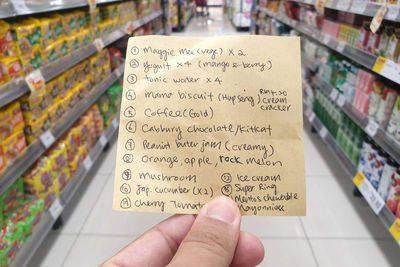 ① Maggie Mee (vege) x 2
② Yogurt x 4 (mango & berry)
③ Tonic water x 4
④ Mama biscuit (Hup Seng) RM4.70 cream cracker
⑤ Coffee (Gold)
⑥ Cadbury chocolate/kitkat
⑦ Peanut buter jam (creamy)
⑧ Orange, apple, rock melon
⑨ Mushroom
⑩ Jap. cucumber (x2)
⑪ Cherry Tomatoe
⑫ Ice cream
Super Ring
Mentos chewable
Mayonniase